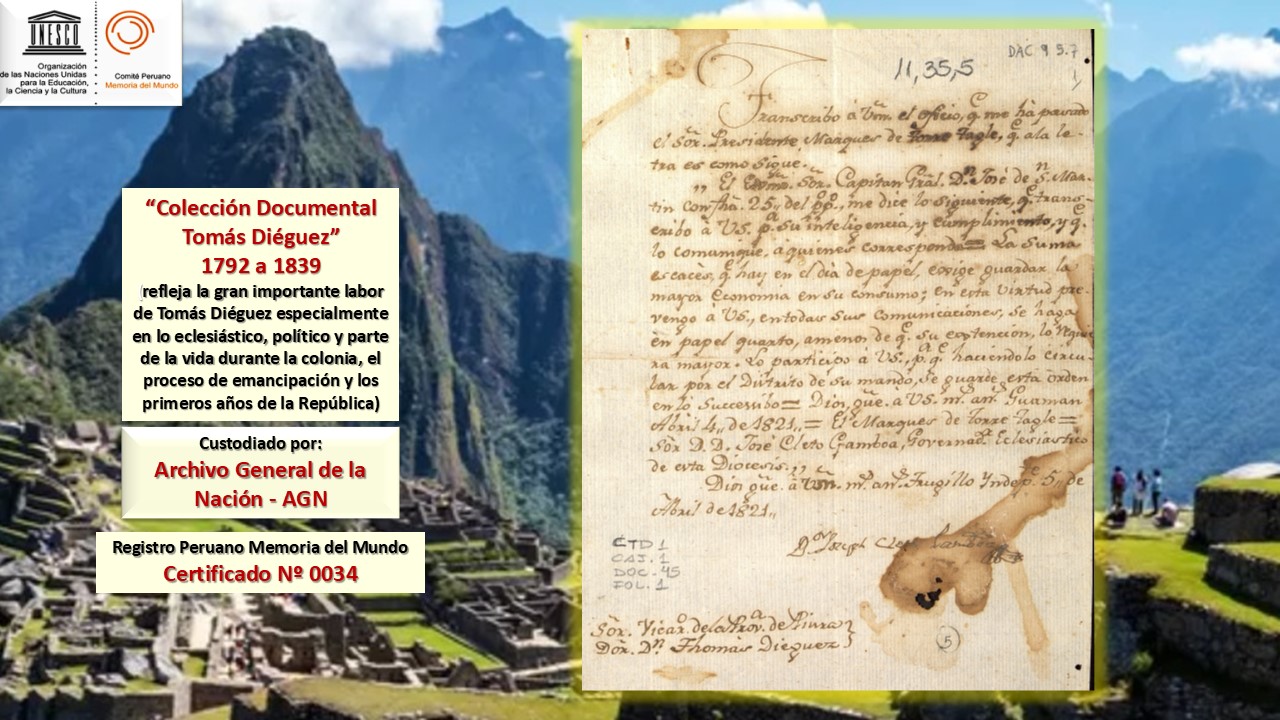 UNESCO
Organización
de las Naciones Unidas
para la Educación,
la Ciencia y la Cultura
Comité Peruano
Memoria del Mundo
“Colección Documental
Tomás Diéguez”
1792 a 1839
(refleja la gran importante labor
de Tomás Diéguez especialmente
en lo eclesiástico, político y parte
de la vida durante la colonia, el
proceso de emancipación y los
primeros años de la República)
Custodiado por:
Archivo General de la
Nación - AGN
Registro Peruano Memoria del Mundo
Certificado Nº 0034
DAC 9 5.7
11,35,5
Transcribo à Vm. el oficio, q.e me hà pasado
el Sõr. Presidente Marques de Torre Tagle, q.e ala le-
tra es como sigue.
,, El Exmo. Sõr. Capitan Gral. D.n José de S.n Mar-
tin con fha. 25,, del pp., me dice lo siguiente, q.e trans-
cribo à VS. p.a su inteligencia, y cumplimiento, y q.e
lo comunique, aquienes corresponda= La suma
escacès, q.e hay en el dia de papel, exige guardar la
mayor economia en su consumo; en esta virtud pre-
vengo à VS., entodas sus comunicaciones, se haga
en papel quarto, amenos de q.e su extencion, lo requie
ra mayor. Lo participo à VS., p.a q.e haciendolo circu-
lar por el Distrito de su mando, se guarde esta orden
en lo Successibo= Dios gũe. à VS. m.s an.s Guaman
Abril 4,, de 1821,,= El Marques de Torre Tagle=
Sõr D. D. José Cleto Gamboa, Governad.r Eclesiastico
de esta Diocesis.,,
Dios gũe. à Vm. m.s an.s Trugillo Yndep.te 5,, de
Abril de 1821,,
D. Joseph Cleto
CTD 1
CAJ. 1
DOC. 45
FOL. 1
Sõr. Vicar.o dela Prov.a de Piura
Dõr. D.n Thomas Dieguez
5